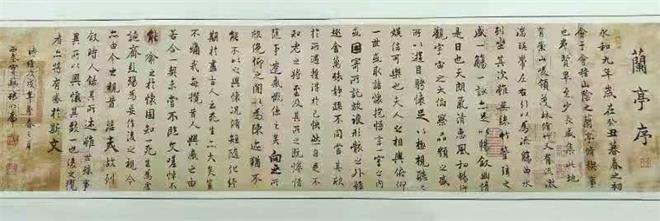 蘭亭序
永和九年歲在癸丑暮春之初
會于會稽山陰之蘭亭脩稧事
也群賢畢至少長咸集此地
有崇山峻領茂林脩竹又有清流激
湍暎帶左右引以為流觴曲水
列坐其次雖無絲竹管弦之
盛一觴一詠亦足以暢敘幽情
是日也天朗氣清惠風和暢仰
觀宇宙之大俯察品類之盛
所以遊目騁懷足以極視聽之
娛信可樂也夫人之相與俯仰
一世或取諸懷抱悟言一室之內
或因寄所託放浪形骸之外雖
趣舍萬殊靜躁不同當其欣
於所遇蹔得於己怏然自足不
知老之將至及其所之既惓情
隨事遷感慨係之矣向之所
欣俛仰之間以為陳迹猶不
能不以之興懷況脩短隨化終
期於盡古人云死生亦大矣豈
不痛哉每攬昔人興感之由
若合一契未嘗不臨文嗟悼不
能喻之於懷固知一死生為虛
誕齊彭殤為妄作後之視今
亦由今之視昔悲夫故列
敘時人錄其所述雖世殊事
異所以興懷其致一也後之攬
者亦將有感於斯文